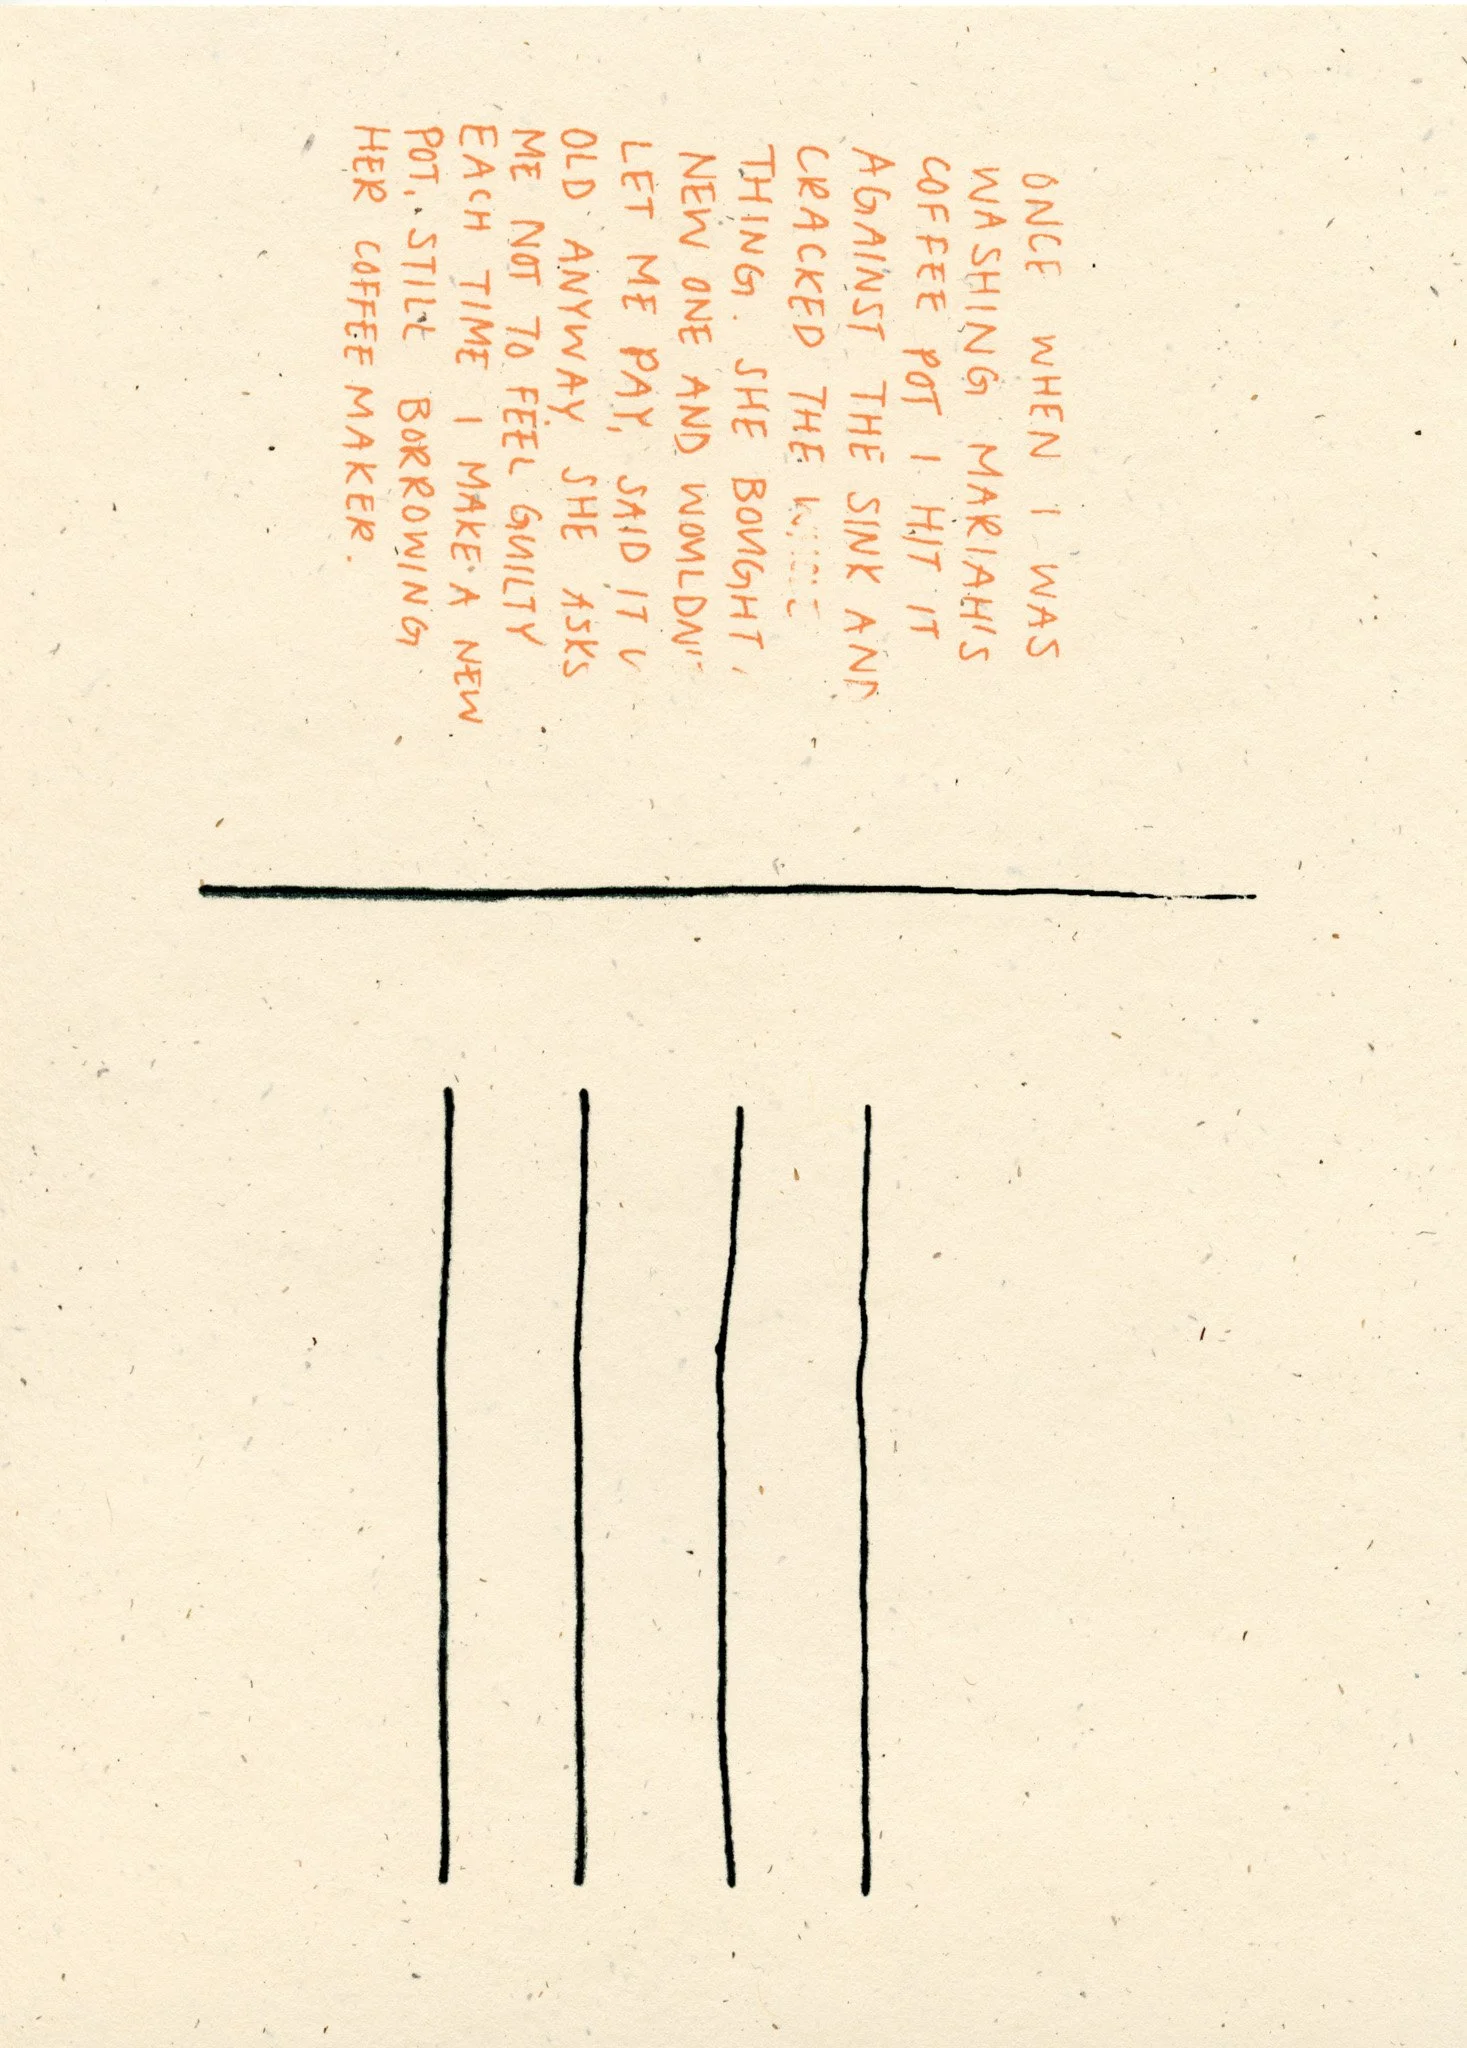 ONCE WHEN I WAS
WASHING MARIAH'S
COFFEE POT I HIT IT
AGAINST THE SINK AND
CRACKED THE WHOLE
THING. SHE BOUGHT
NEW ONE AND WOULDN'T
LET ME PAY, SAID IT
OLD ANYWAY. SHE ASKS
ME NOT TO FEEL GUILTY
EACH TIME I MAKE A NEW
POT, STILL BORROWING
HER COFFEE MAKER.